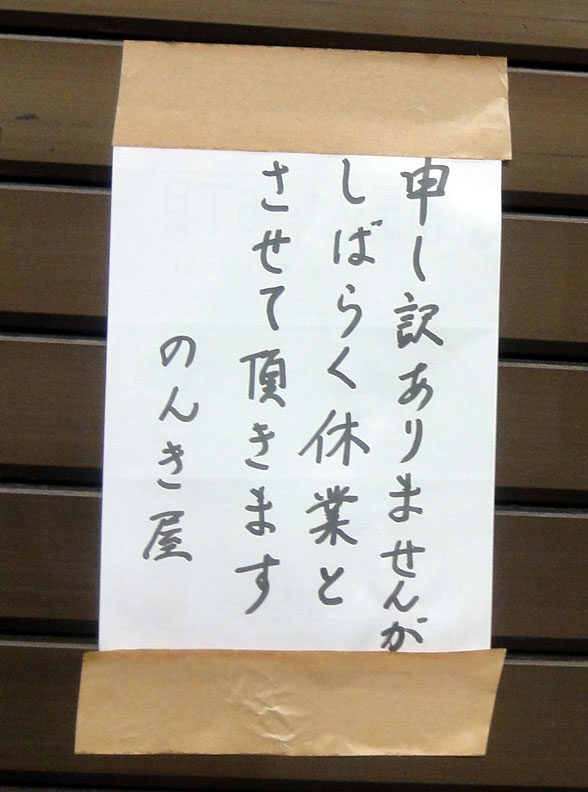 申し訳ありませんが
しばらく休業と
させて頂きます
のんき屋